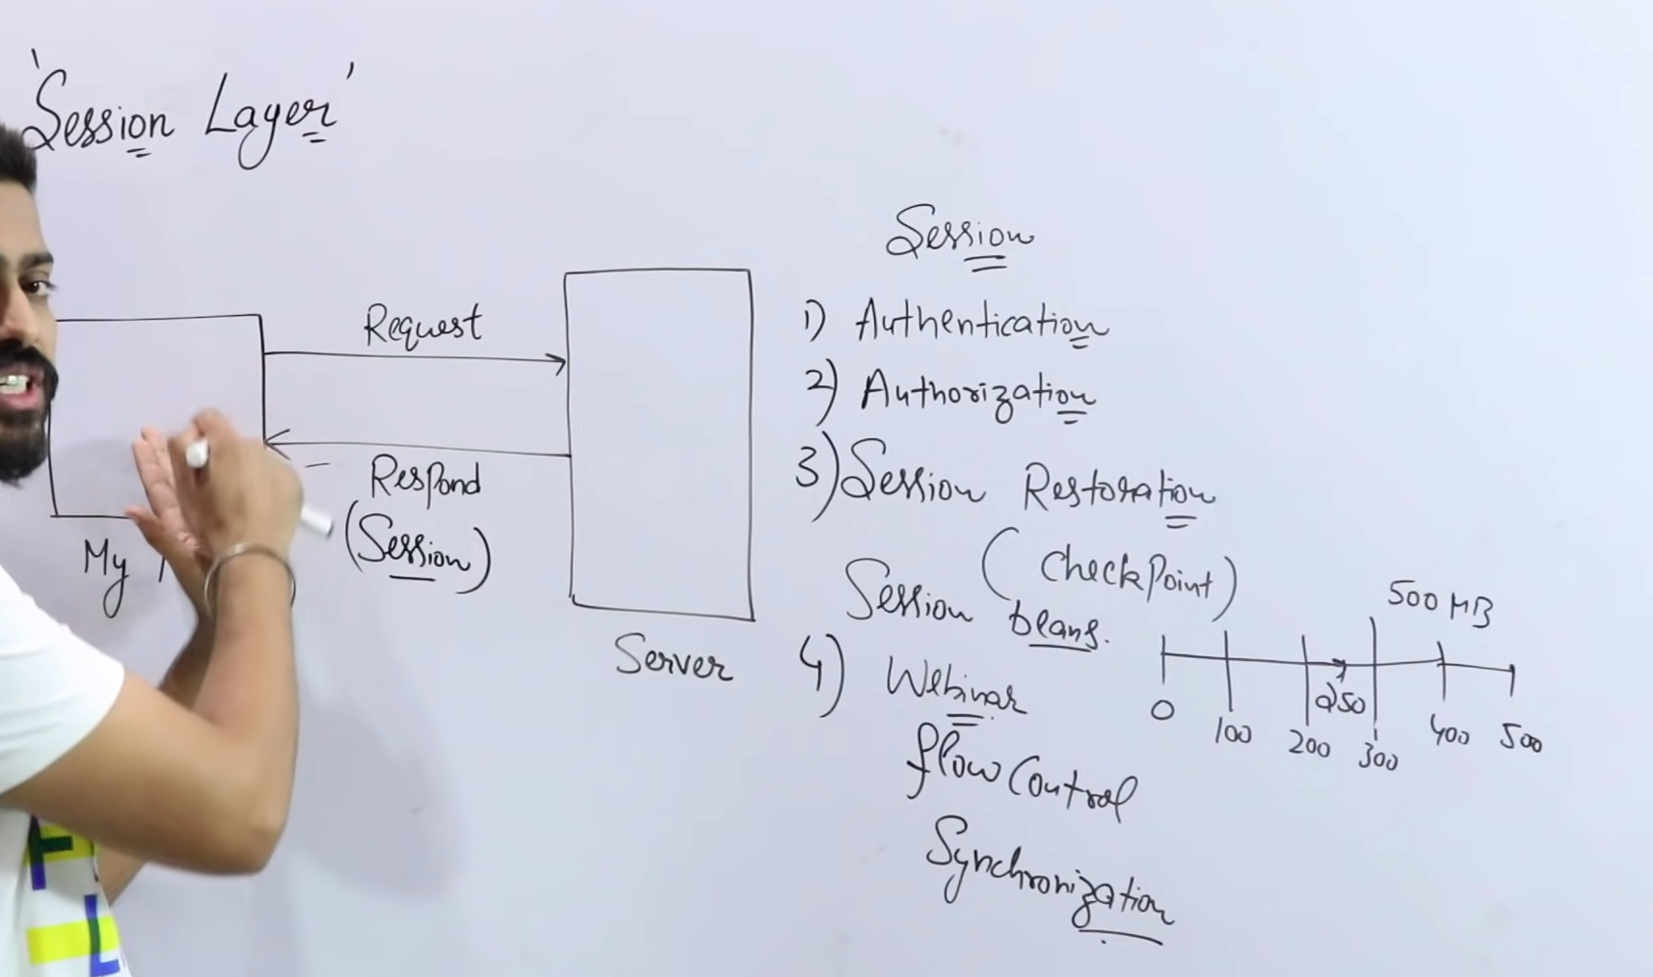 'Session Layer'
Request
Respond
(Session)
My
Server
Session
1) Authentication
2) Authorization
3) Session Restoration
(CheckPoint)
Session beans.
4) Webinar
flow Control
Synchronization
500 MB
0 100 200 250 300 400 500